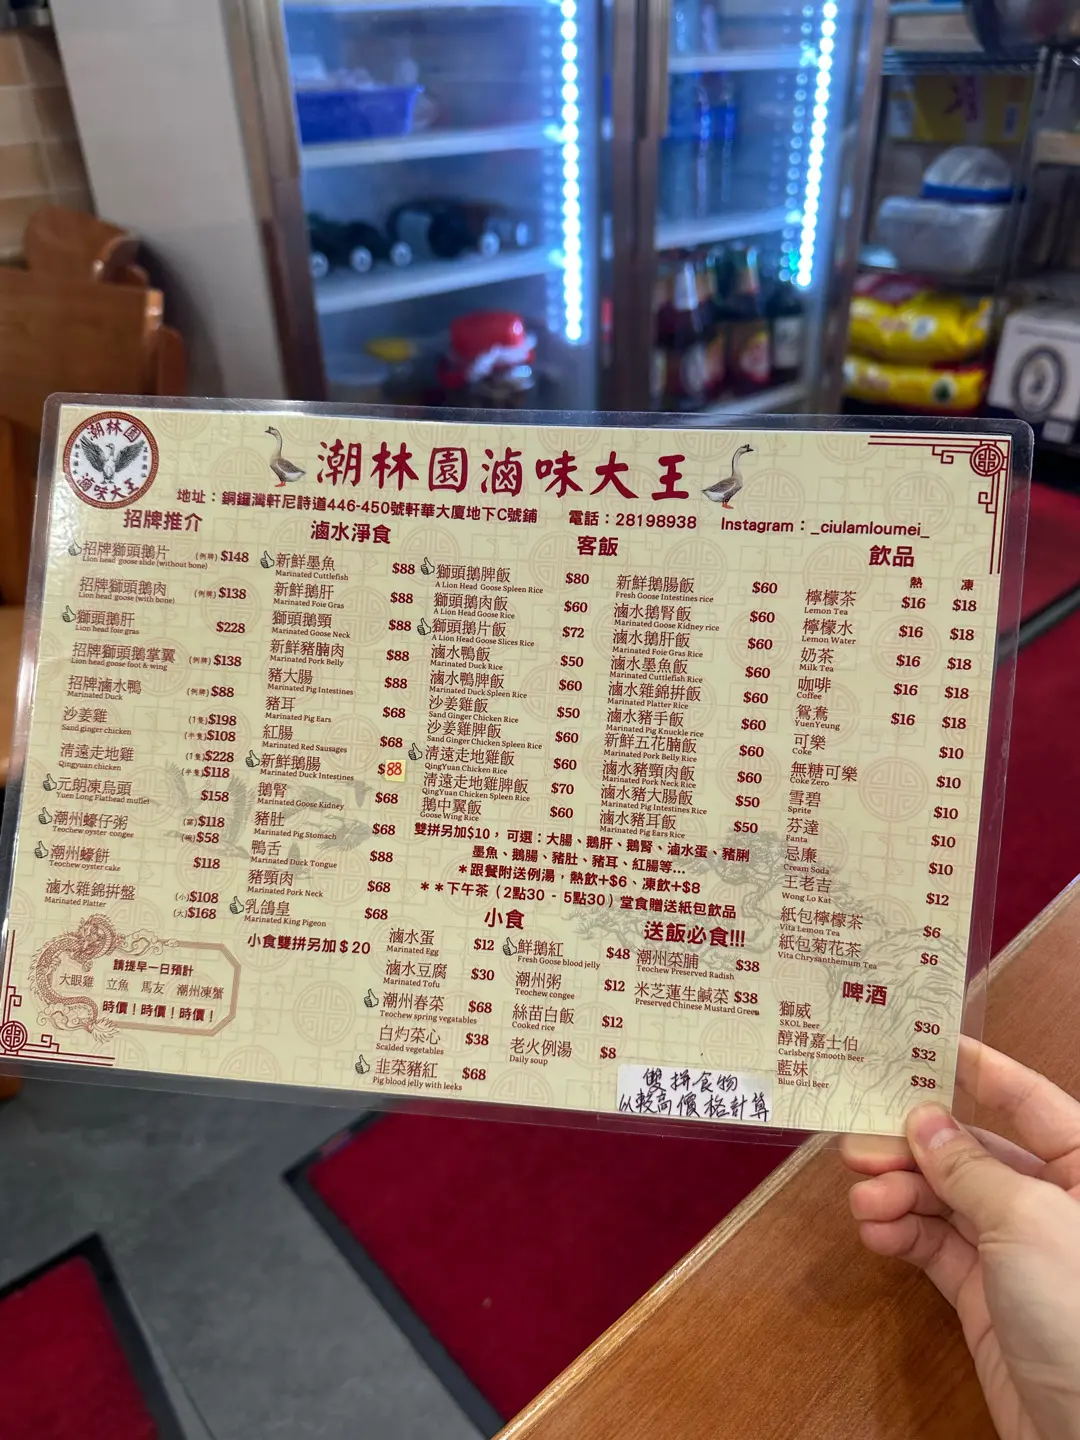 潮林園
滷味大王
潮林園滷味大王
地址：銅鑼灣軒尼詩道446-450號軒華大廈地下C號鋪 電話：28198938 Instagram：_ciulamloumei_
招牌推介
招牌獅頭鵝片 (例牌) $148
Lion head goose slide (without bone)
招牌獅頭鵝肉 (例牌) $138
Lion head goose (with bone)
獅頭鵝肝 $228
Lion head foie gras
招牌獅頭鵝掌翼 (例牌) $138
Lion head goose foot & wing
招牌滷水鴨 (例牌) $88
Marinated Duck
沙姜雞 (1隻) $198
Sand ginger chicken (半隻) $108
清遠走地雞 (1隻) $228
Qingyuan chicken (半隻) $118
元朗凍烏頭 $158
Yuen Long Flathead mullet
潮州蠔仔粥 (窩) $118
Teochew oyster congee (碗) $58
潮州蠔餅 $118
Teochew oyster cake
滷水雜錦拼盤 (小) $108
Marinated Platter (大) $168
請提早一日預計
大眼雞 立魚 馬友 潮州凍蟹
時價！時價！時價！
滷水淨食
新鮮墨魚 $88
Marinated Cuttlefish
新鮮鵝肝 $88
Marinated Foie Gras
獅頭鵝頸 $88
Marinated Goose Neck
新鮮豬腩肉 $88
Marinated Pork Belly
豬大腸 $88
Marinated Pig Intestines
豬耳 $68
Marinated Pig Ears
紅腸 $68
Marinated Red Sausages
新鮮鵝腸 $88
Marinated Duck Intestines
鵝腎 $68
Marinated Goose Kidney
豬肚 $68
Marinated Pig Stomach
鴨舌 $88
Marinated Duck Tongue
豬頸肉 $68
Marinated Pork Neck
乳鴿皇 $68
Marinated King Pigeon
小食雙拼另加$20
客飯
獅頭鵝脾飯 $80
A Lion Head Goose Spleen Rice
獅頭鵝肉飯 $60
A Lion Head Goose Rice
獅頭鵝片飯 $72
A Lion Head Goose Slices Rice
滷水鴨飯 $50
Marinated Duck Rice
滷水鴨脾飯 $60
Marinated Duck Spleen Rice
沙姜雞飯 $50
Sand Ginger Chicken Rice
沙姜雞脾飯 $60
Sand Ginger Chicken Spleen Rice
清遠走地雞飯 $60
QingYuan Chicken Rice
清遠走地雞脾飯 $70
QingYuan Chicken Spleen Rice
鵝中翼飯 $60
Goose Wing Rice
新鮮鵝腸飯 $60
Fresh Goose Intestines rice
滷水鵝腎飯 $60
Marinated Goose Kidney rice
滷水鵝肝飯 $60
Marinated Foie Gras rice
滷水墨魚飯 $60
Marinated Cuttlefish Rice
滷水雜錦拼飯 $60
Marinated Platter Rice
滷水豬手飯 $60
Marinated Pig Knuckle rice
新鮮五花腩飯 $60
Marinated Pork Belly Rice
滷水豬頸肉飯 $60
Marinated Pork Neck Rice
滷水豬大腸飯 $50
Marinated Pig Intestines Rice
滷水豬耳飯 $50
Marinated Pig Ears Rice
雙拼另加$10，可選：大腸、鵝肝、鵝腎、滷水蛋、豬脷
墨魚、鵝腸、豬肚、豬耳、紅腸等...
*跟餐附送例湯，熱飲+$6、凍飲+$8
**下午茶（2點30 - 5點30）堂食贈送紙包飲品
小食
滷水蛋 $12
Marinated Egg
滷水豆腐 $30
Marinated Tofu
潮州春菜 $68
Teochew spring vegatables
白灼菜心 $38
Scalded vegetables
韭菜豬紅 $68
Pig blood jelly with leeks
鮮鵝紅 $48
Fresh Goose blood jelly
潮州粥 $12
Teochew congee
絲苗白飯 $12
Cooked rice
老火例湯 $8
Daily soup
送飯必食!!!
潮州菜脯 $38
Teochew Preserved Radish
米芝蓮生鹹菜 $38
Preserved Chinese Mustard Green
雙拼食物
以較高價格計算
飲品
熱 凍
檸檬茶 $16 $18
Lemon Tea
檸檬水 $16 $18
Lemon Water
奶茶 $16 $18
Milk Tea
咖啡 $16 $18
Coffee
鴛鴦 $16 $18
YuenYeung
可樂 $10
Coke
無糖可樂 $10
Coke Zero
雪碧 $10
Sprite
芬達 $10
Fanta
忌廉 $10
Cream Soda
王老吉 $12
Wong Lo Kat
紙包檸檬茶 $6
Vita Lemon Tea
紙包菊花茶 $6
Vita Chrysanthemum Tea
啤酒
獅威 $30
SKOL Beer
醇滑嘉士伯 $32
Carlsberg Smooth Beer
藍妹 $38
Blue Girl Beer